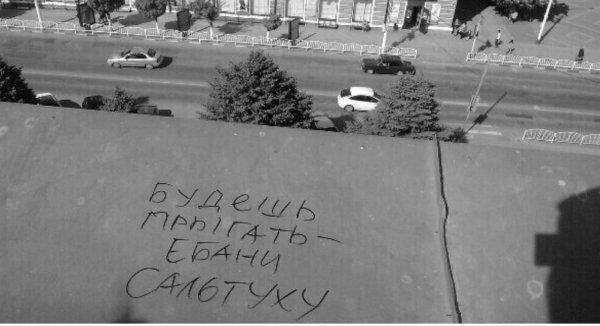 БУДЕШЬ
ПРЫГАТЬ —
ЕБАНИ
САЛЬТУХУ